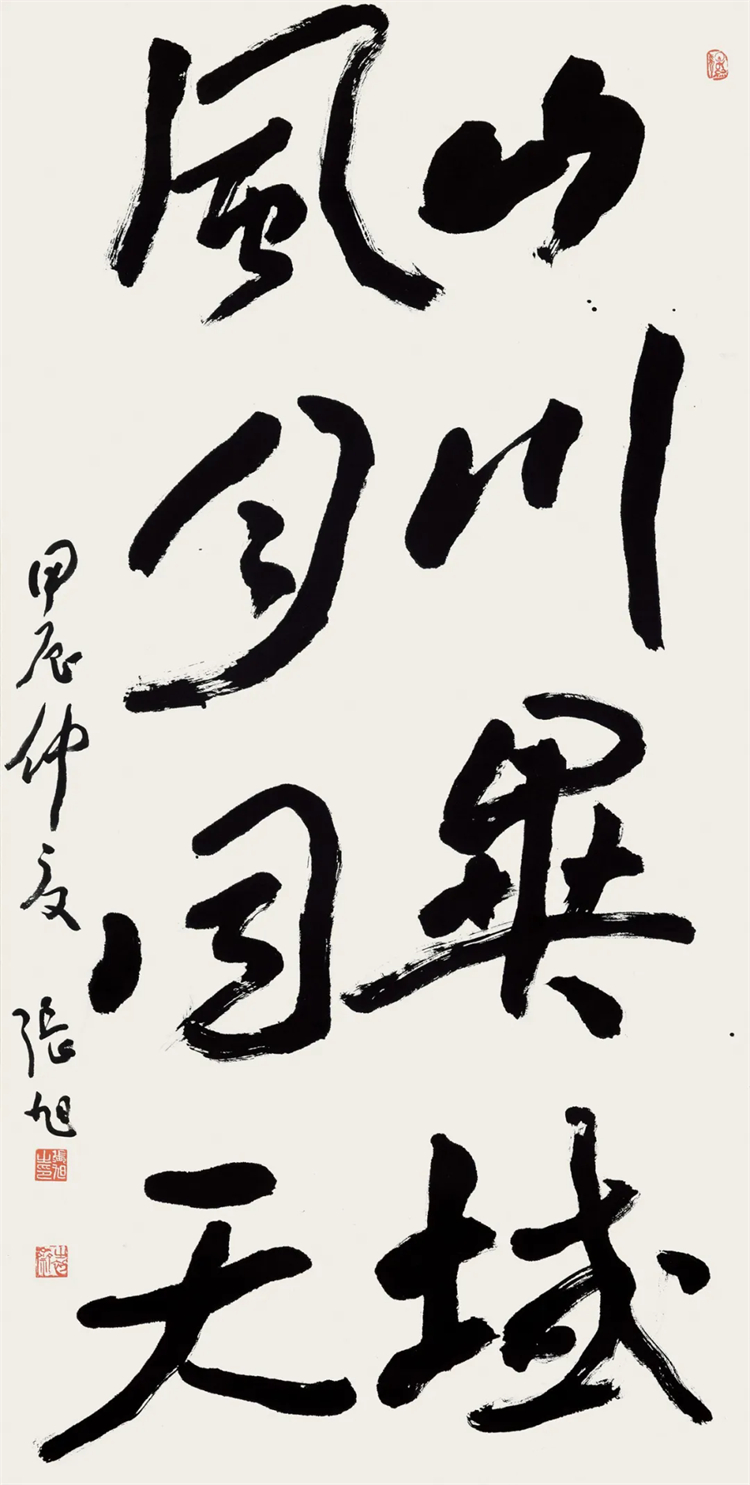 山川異域
風月同天
甲辰仲夏 張旭